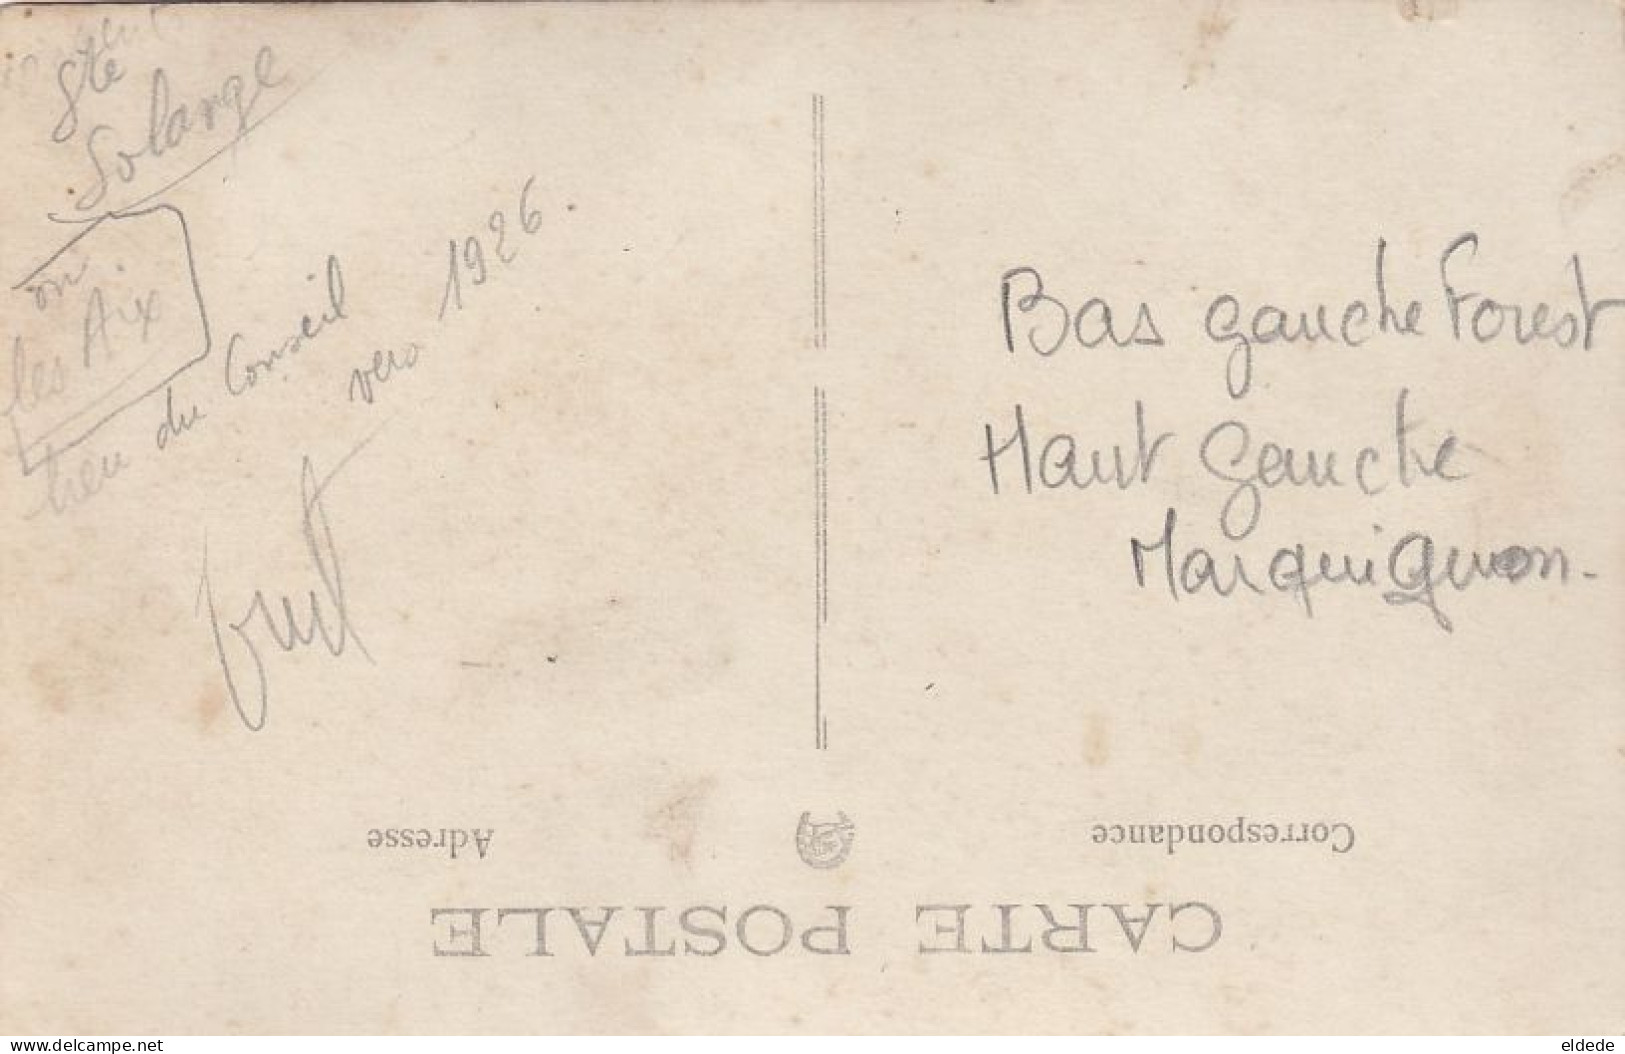 Ste
Solange
on
les Aix
lieu du Conseil
vers 1926.
Bas gauche Forest
Haut gauche
Marquignon.
Adresse
Correspondance
CARTE POSTALE
www.delcampe.net
eldede